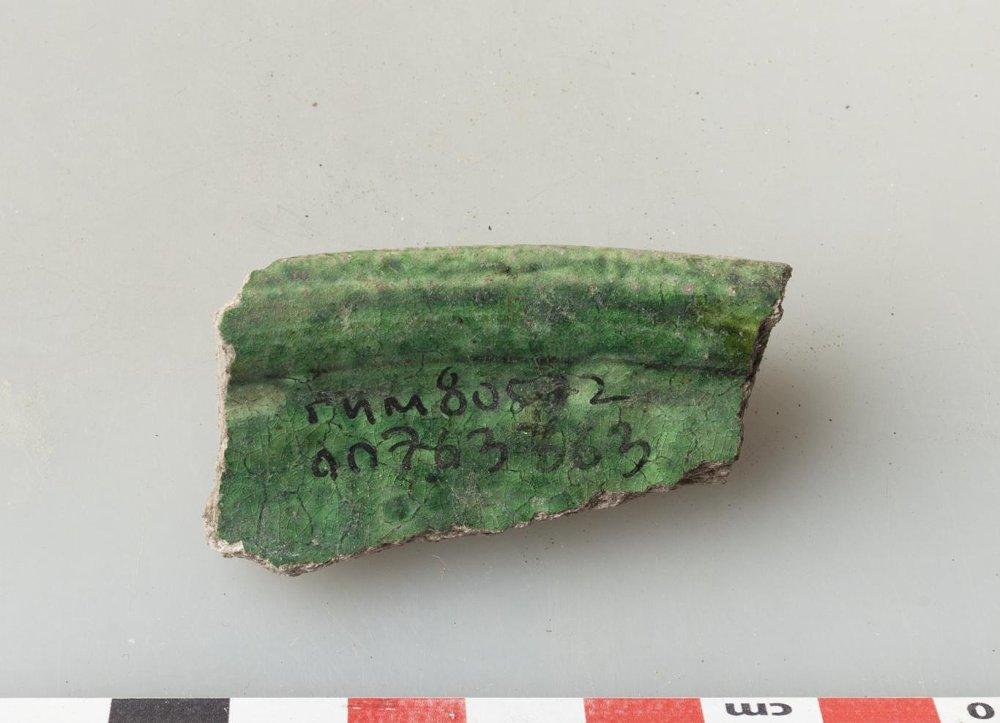 гим 80592
оп 763 663
cm
0